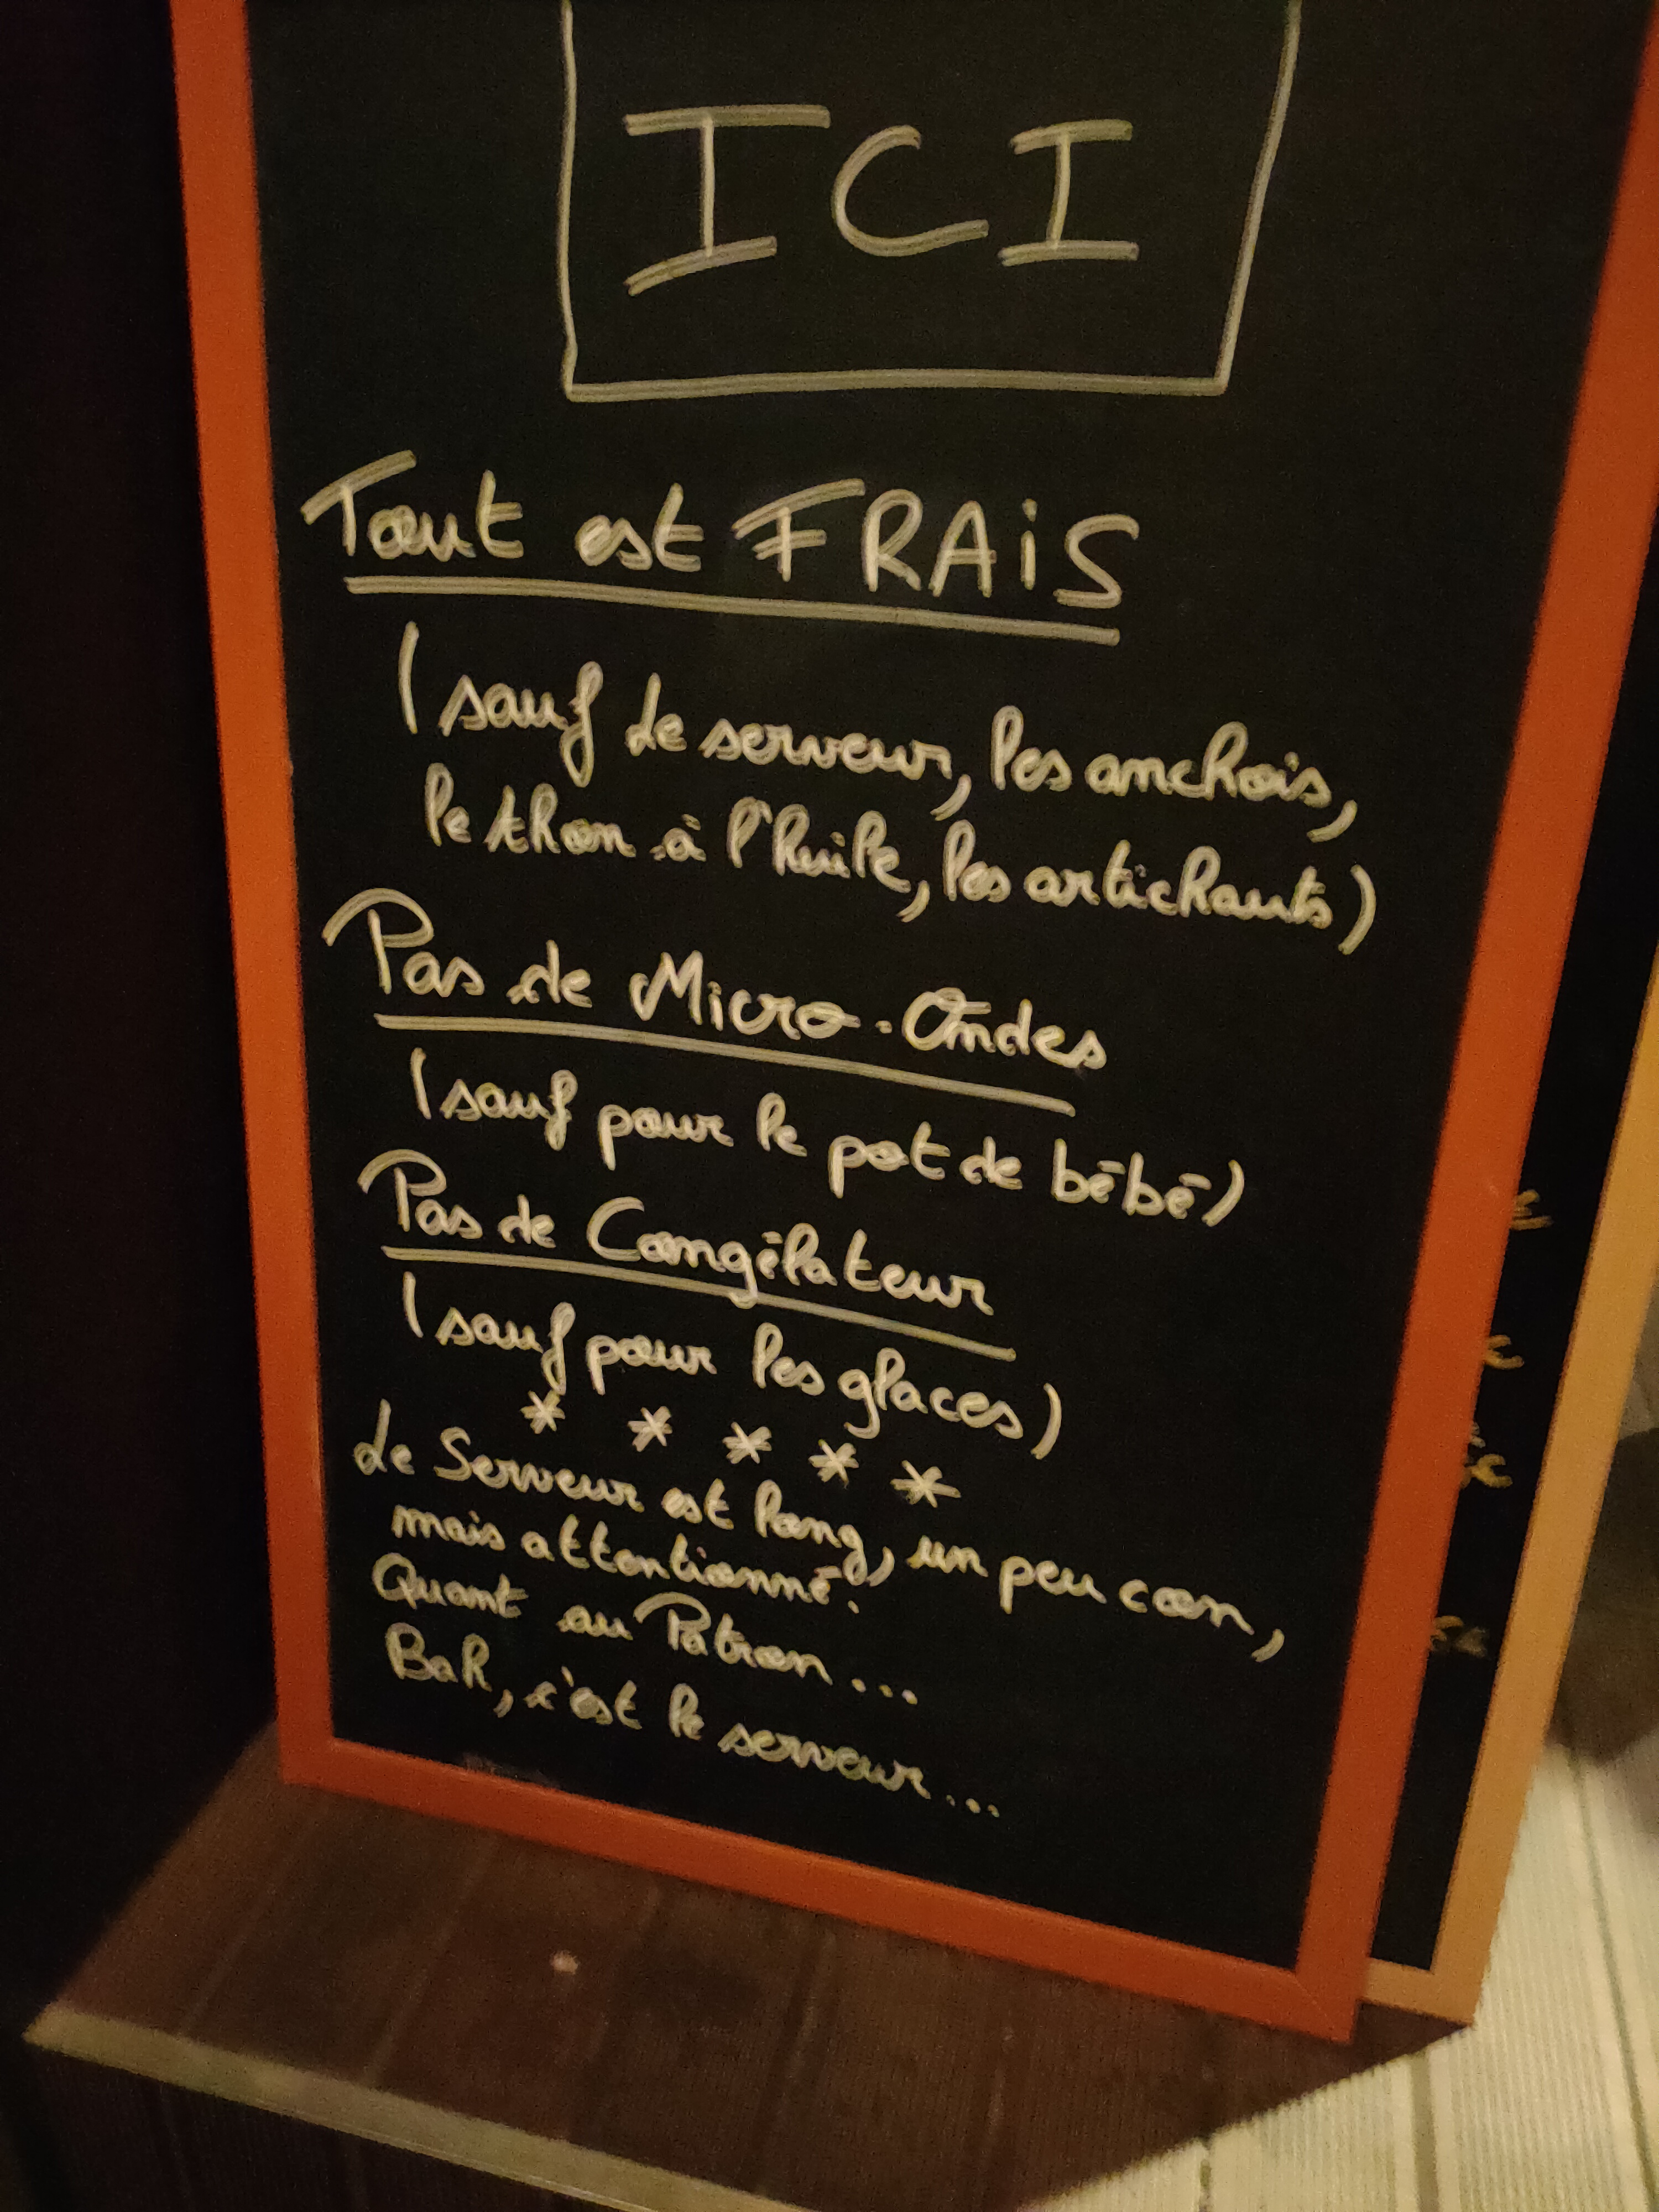 ICI
Tout est FRAiS
(sauf le serveur, les anchois,
le thon à l'huile, les artichauts)
Pas de Micro-Ondes
(sauf pour le pot de bébé)
Pas de Congélateur
(sauf pour les glaces)
* * * * *
Le Serveur est long, un peu con,
mais attentionné.
Quant au Patron...
Bah, c'est le serveur...